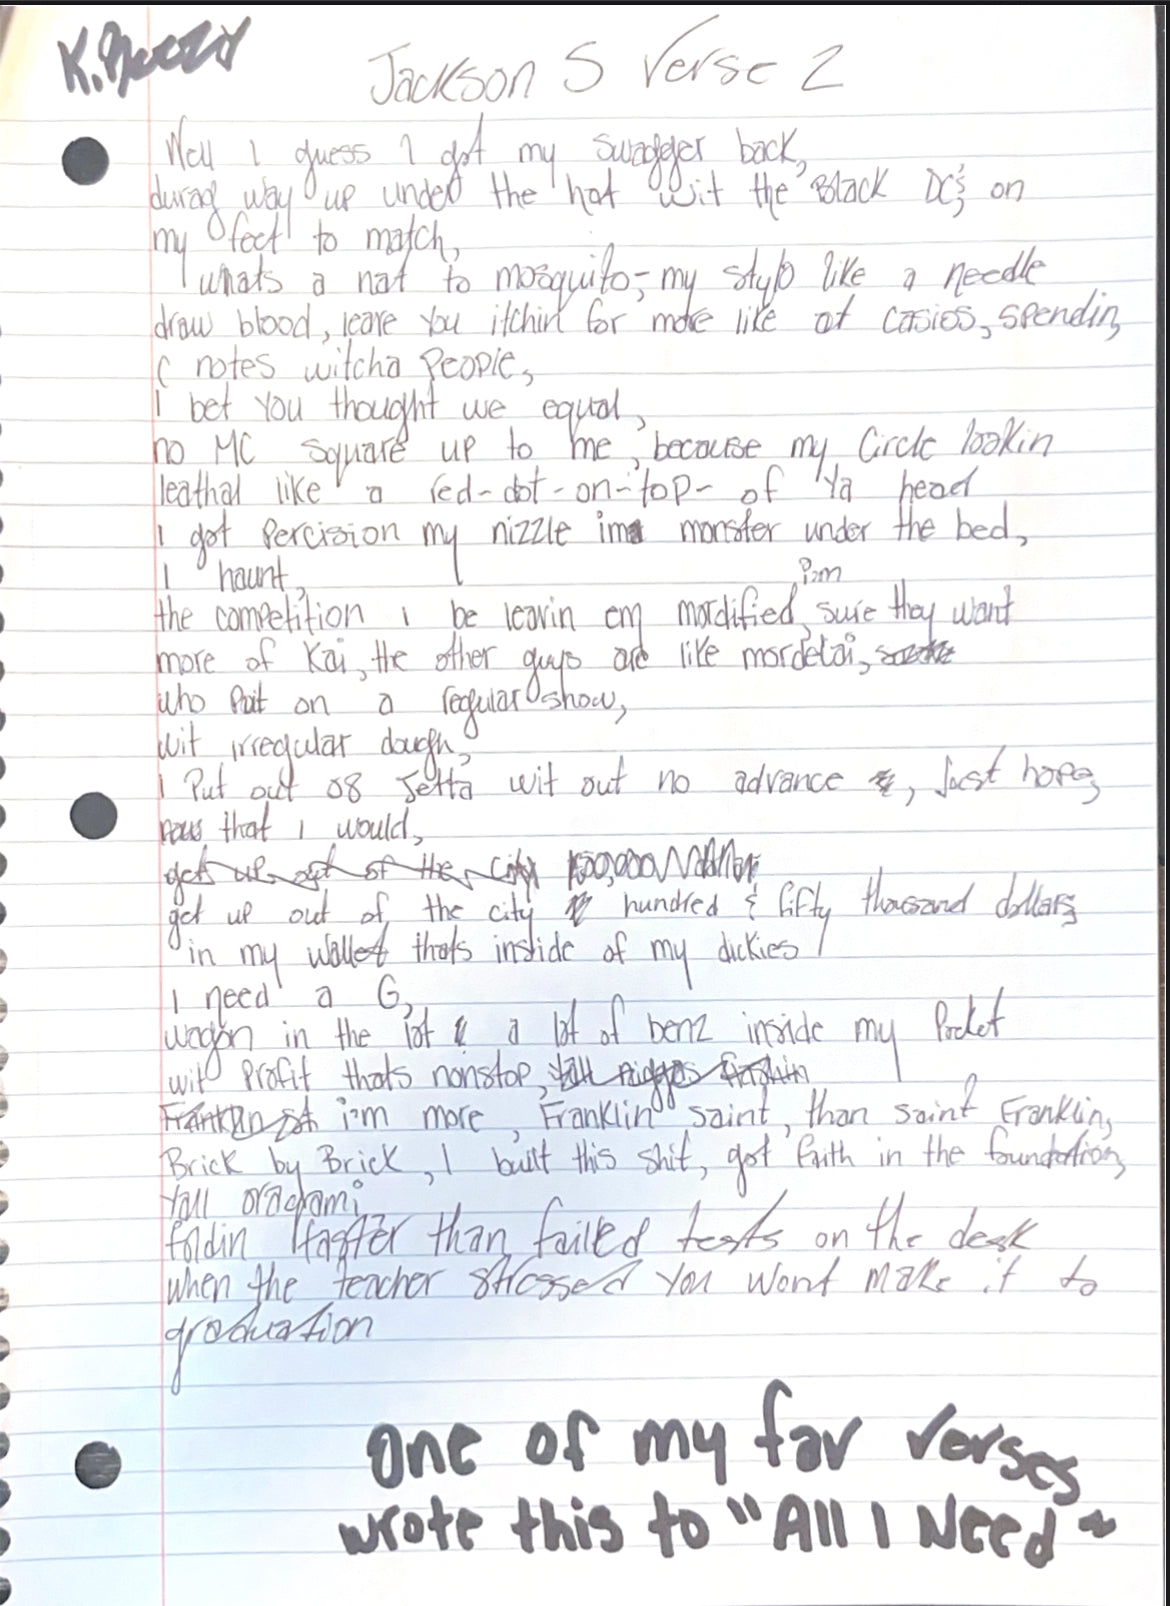 K. Breezy
Jackson 5 Verse 2
Well I guess I got my swagger back,
durag way up under the hat wit the Black DC's on
my feet to match,
whats a nat to mosquito, my style like a needle
draw blood, leave you itchin for more like at casios, spendin
C notes witcha People,
I bet you thought we equal,
no MC square up to me, because my circle lookin
leathal like a red-dot-on-top- of Ya head
I got Percision my nizzle im monster under the bed,
I haunt,
i'm
the competition I be leavin em mordified, sure they want
more of Kai, the other guys are like mordecai,
who Put on a regular show,
wit irregular dough,
I Put out 08 Jetta wit out no advance, just hope,
that I would,
get up out of the city
get up out of the city hundred & fifty thousand dollars
in my wallet thats inside of my dickies
I need a G,
wagon in the lot & a lot of benz inside my Pocket
wit Profit thats nonstop,
i'm more, Franklin saint, than saint Franklin,
Brick by Brick, I built this shit, got faith in the foundation,
Yall oragami
foldin faster than failed tests on the desk
when the teacher stressed you wont make it to
graduation
one of my fav verses
wrote this to "All I Need"